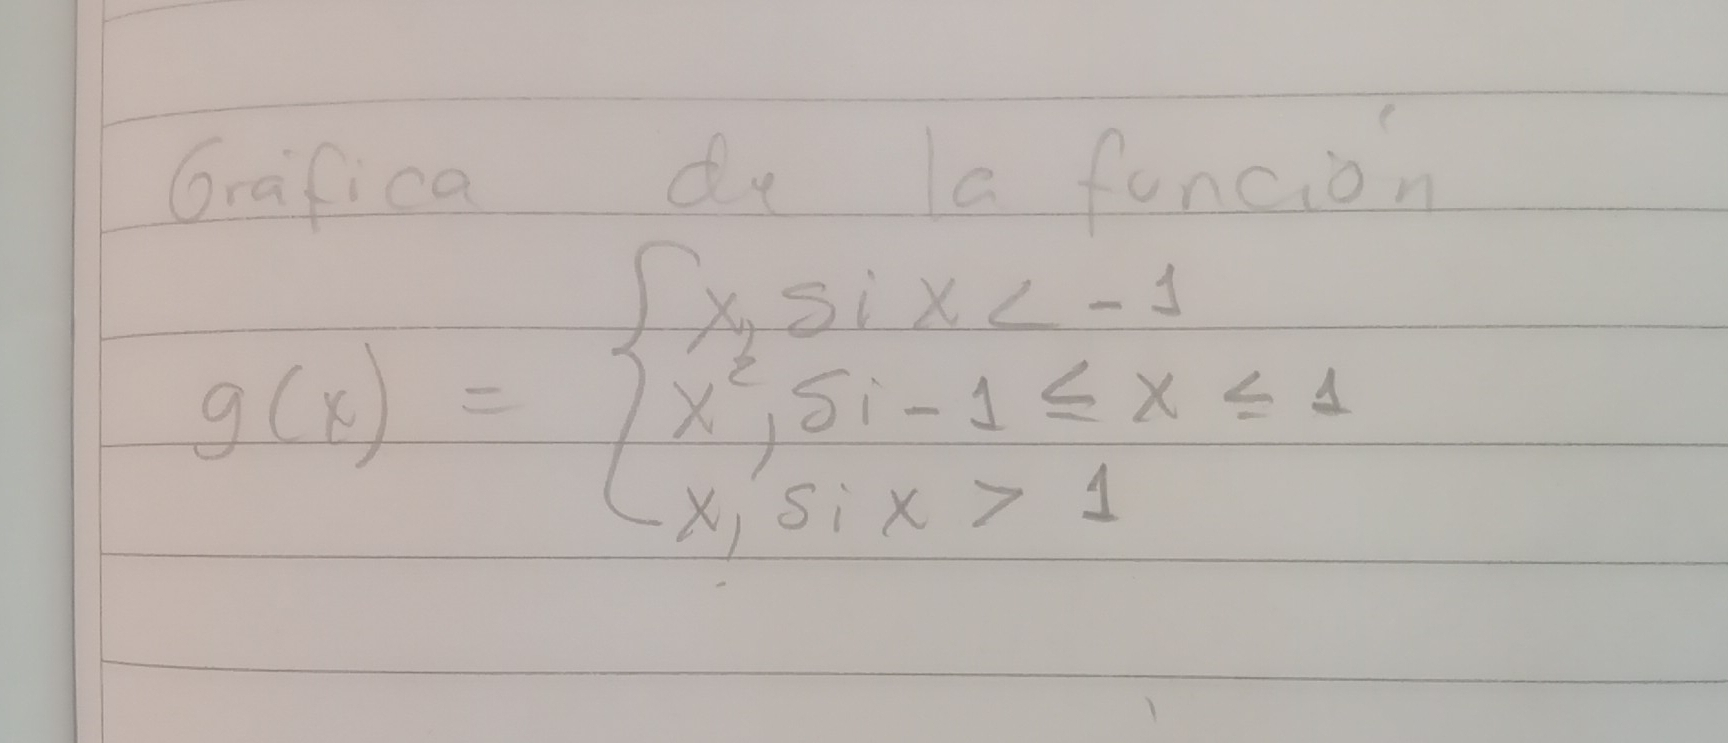 Gráfica de la función
x, si x < -1
g(x) = { x², si -1 ≤ x ≤ 1
x, si x > 1